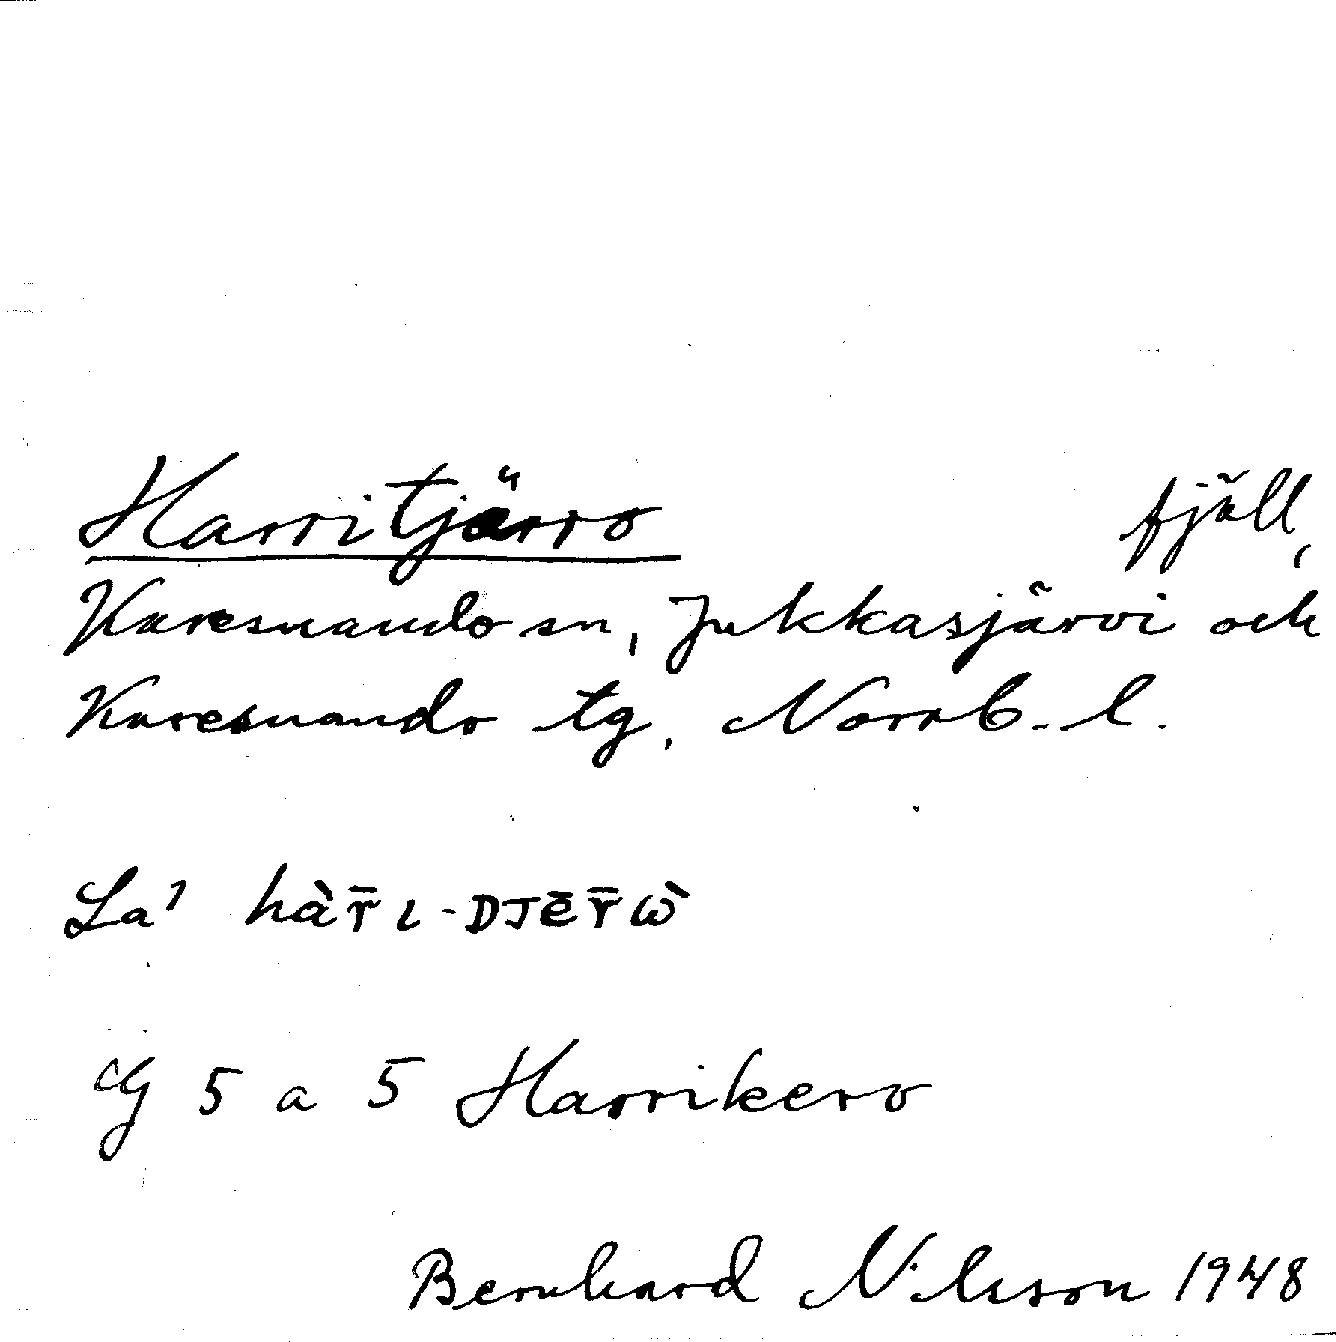 Harritjärro fjäll,
Karesuando sn, Jukkasjärvi och
Karesuando tg, Norrb. l.
La' hàr̄ɩ-DJēr̄ὼ
G 5 a 5 Harrikero
Bernhard Nilsson 1948